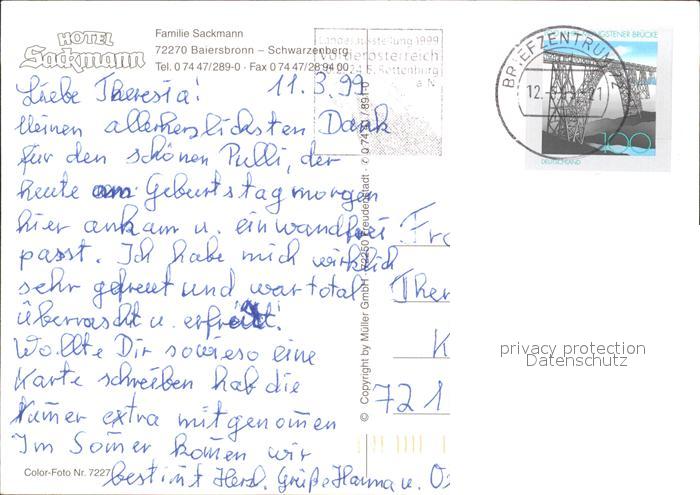 HOTEL
Sackmann
Familie Sackmann
72270 Baiersbronn – Schwarzenberg
Tel. 0 74 47/289-0 · Fax 0 74 47/28 94 00
Landesausstellung 1999
Vorderösterreich
Rottenburg
a. N.
BRIEFZENTRUM
12.
21
MÜNGSTENER BRÜCKE
100
DEUTSCHLAND
11.3.99
Liebe Theresia!
Meinen allerherzlichsten Dank
für den schönen Pulli, der
heute am Geburtstagmorgen
hier ankam u. einwandfrei
passt. Ich habe mich wirklich
sehr gefreut und war total
überrascht u. erfreut!
Wollte Dir sowieso eine
Karte schreiben hab die
Numer extra mitgenomen
Im Somer komen wir
bestimt Herzl. Grüße Hanna u.
Fr
Ther
K
72 1
© Copyright by Müller GmbH · 72250 Freudenstadt · ✆ 0 74 41/ 891-0
privacy protection
Datenschutz
Color-Foto Nr. 7227